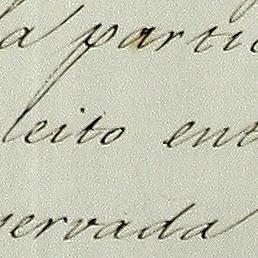 a parti
leito ent
servada